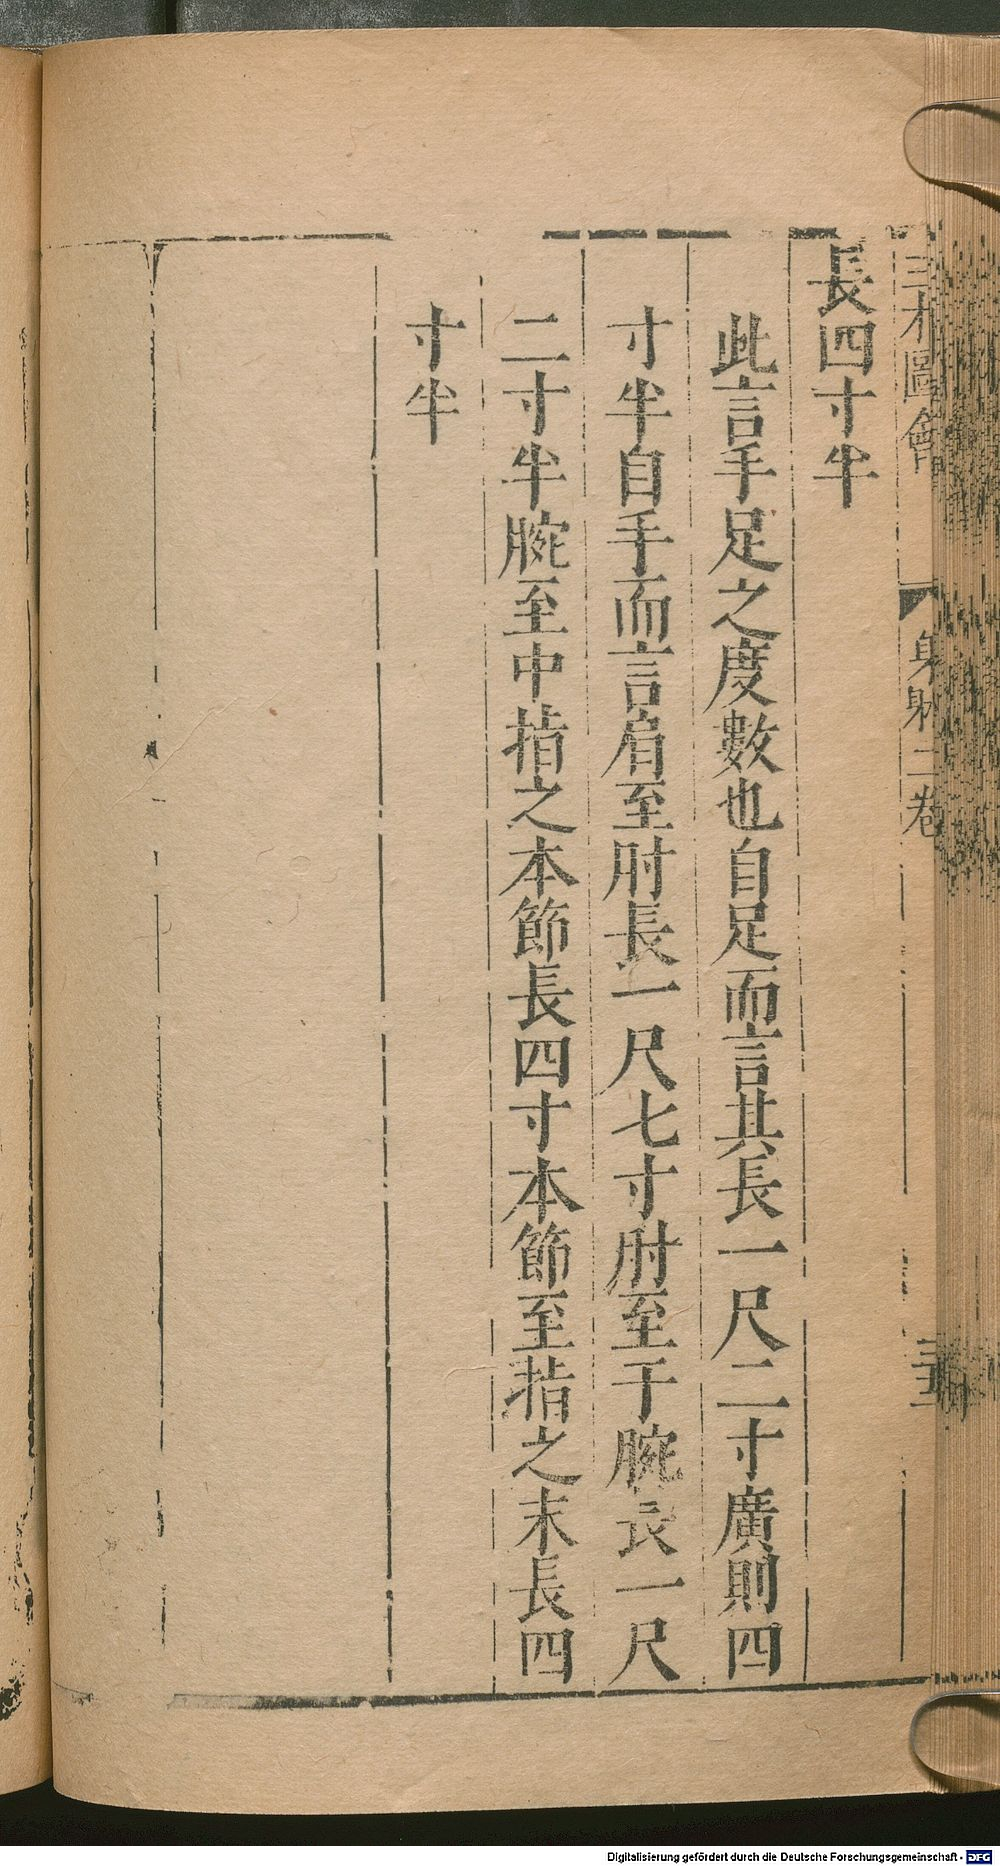 三才圖會
身體二卷
長四寸半
此言手足之度數也自足而言其長一尺二寸廣則四
寸半自手而言肩至肘長一尺七寸肘至于腕長一尺
二寸半腕至中指之本節長四寸本節至指之末長四
寸半
Digitalisierung gefördert durch die Deutsche Forschungsgemeinschaft - DFG